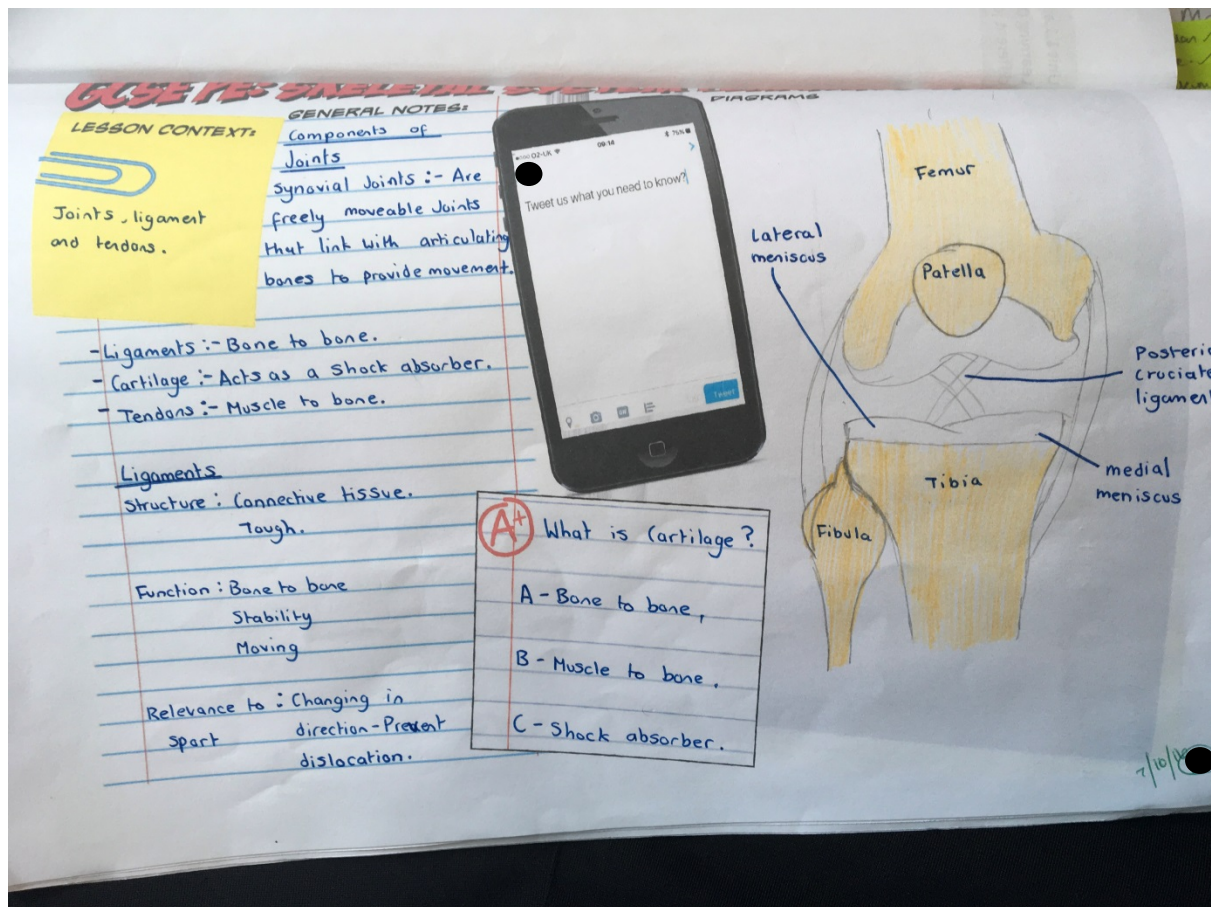 GCSE PE: SKELETAL
LESSON CONTEXT:
Joints, ligament
and tendons.
GENERAL NOTES:
Components of
Joints
Synovial Joints :- Are
freely moveable Joints
that link with articulating
bones to provide movement.
- Ligaments :- Bone to bone.
- Cartilage :- Acts as a shock absorber.
- Tendons :- Muscle to bone.
Ligaments
Structure : Connective tissue.
Tough.
Function : Bone to bone
Stability
Moving
Relevance to : Changing in
sport direction - Prevent
dislocation.
O2-UK 09:14 76%
Tweet us what you need to know?
Tweet
A+ What is Cartilage ?
A - Bone to bone,
B - Muscle to bone.
C - Shock absorber.
DIAGRAMS
Femur
Patella
Lateral
meniscus
Posterio
cruciate
ligament
medial
meniscus
Tibia
Fibula
7/10/